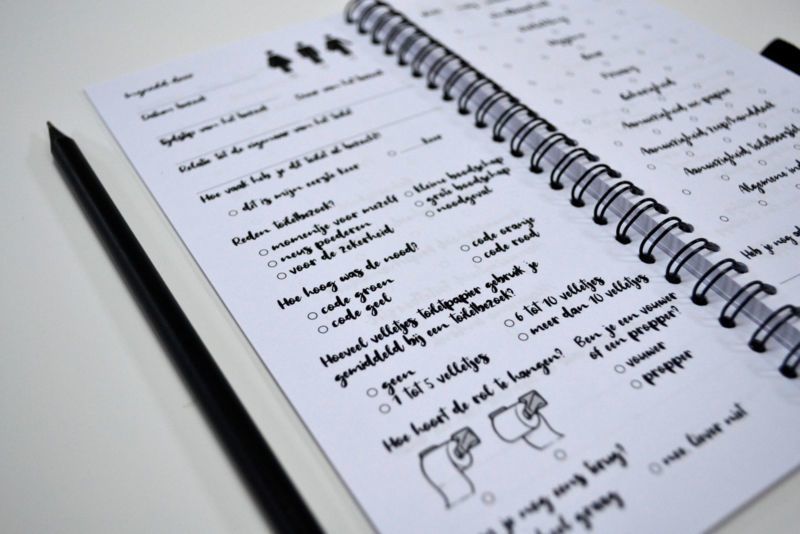 Ingevuld door
Datum bezoek
Duur van het bezoek
Tijdstip van het bezoek
Relatie tot de eigenaar van het toilet
Hoe vaak heb je dit toilet al bezocht?
dit is mijn eerste keer
keer
Reden toiletbezoek?
momentje voor mezelf
neus poederen
voor de zekerheid
kleine boodschap
grote boodschap
noodgeval
Hoe hoog was de nood?
code groen
code geel
code oranje
code rood
Hoeveel velletjes toiletpapier gebruik je
gemiddeld bij een toiletbezoek?
geen
1 tot 5 velletjes
6 tot 10 velletjes
meer dan 10 velletjes
Hoe hoort de rol te hangen?
Ben je een vouwer
of een propper?
vouwer
propper
je nog eens terug?
graag
nee liever niet
Hygiëne
Geur
Privacy
Netheid
Aanwezigheid wc-papier
Aanwezigheid zeep/handdoek
Aanwezigheid toiletborstel
Algemene
Heb je nog